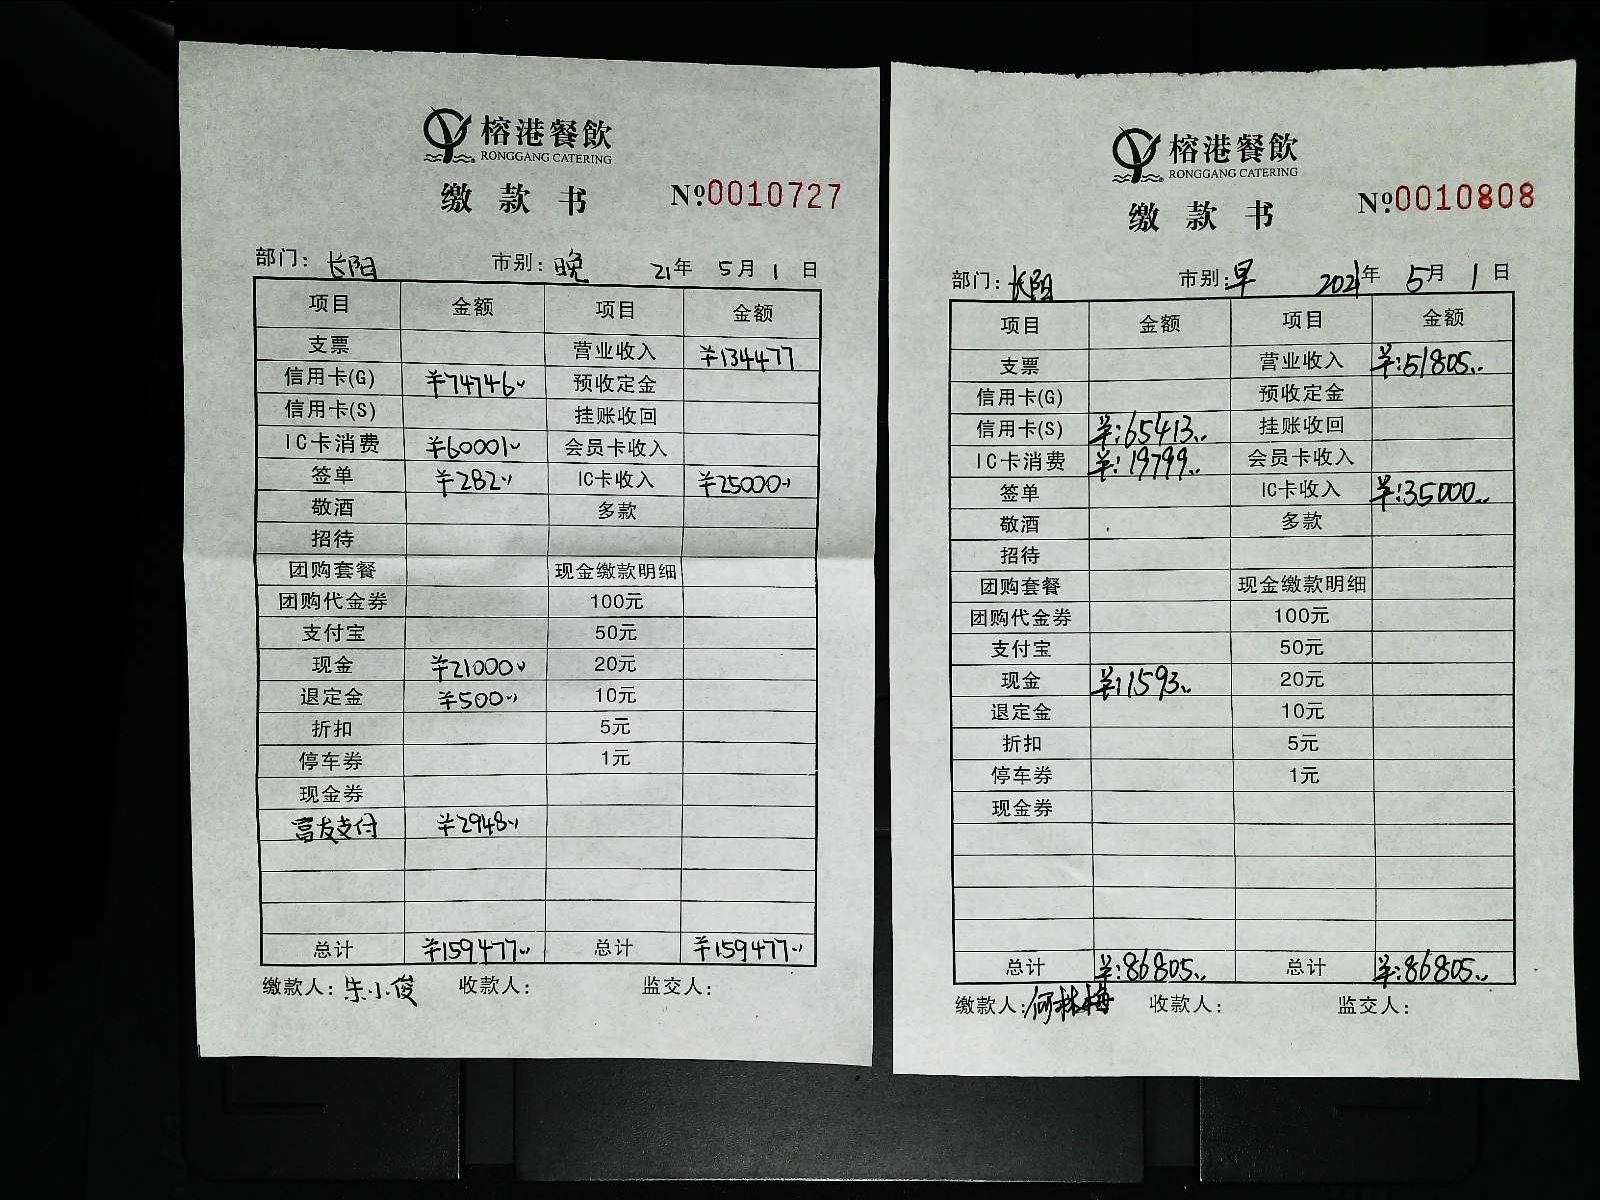 榕港餐飲
RONGGANG CATERING
缴款书 №0010727
部门：长阳 市别：晚 21年 5月 1日
项目 金额 项目 金额
支票 营业收入 ¥134477
信用卡(G) ¥74746 预收定金
信用卡(S) 挂账收回
IC卡消费 ¥60001 会员卡收入
签单 ¥282 IC卡收入 ¥25000
敬酒 多款
招待
团购套餐 现金缴款明细
团购代金券 100元
支付宝 50元
现金 ¥21000 20元
退定金 ¥500 10元
折扣 5元
停车券 1元
现金券
富友支付 ¥2948
总计 ¥159477 总计 ¥159477
缴款人：朱小俊 收款人： 监交人：
榕港餐飲
RONGGANG CATERING
缴款书 №0010808
部门：长阳 市别：早 2021年 5月 1日
项目 金额 项目 金额
支票 营业收入 ¥:51805
信用卡(G) 预收定金
信用卡(S) ¥:65413 挂账收回
IC卡消费 ¥:19799 会员卡收入
签单 IC卡收入 ¥:35000
敬酒 多款
招待
团购套餐 现金缴款明细
团购代金券 100元
支付宝 50元
现金 ¥:1593 20元
退定金 10元
折扣 5元
停车券 1元
现金券
总计 ¥:86805 总计 ¥:86805
缴款人：何林梅 收款人： 监交人：